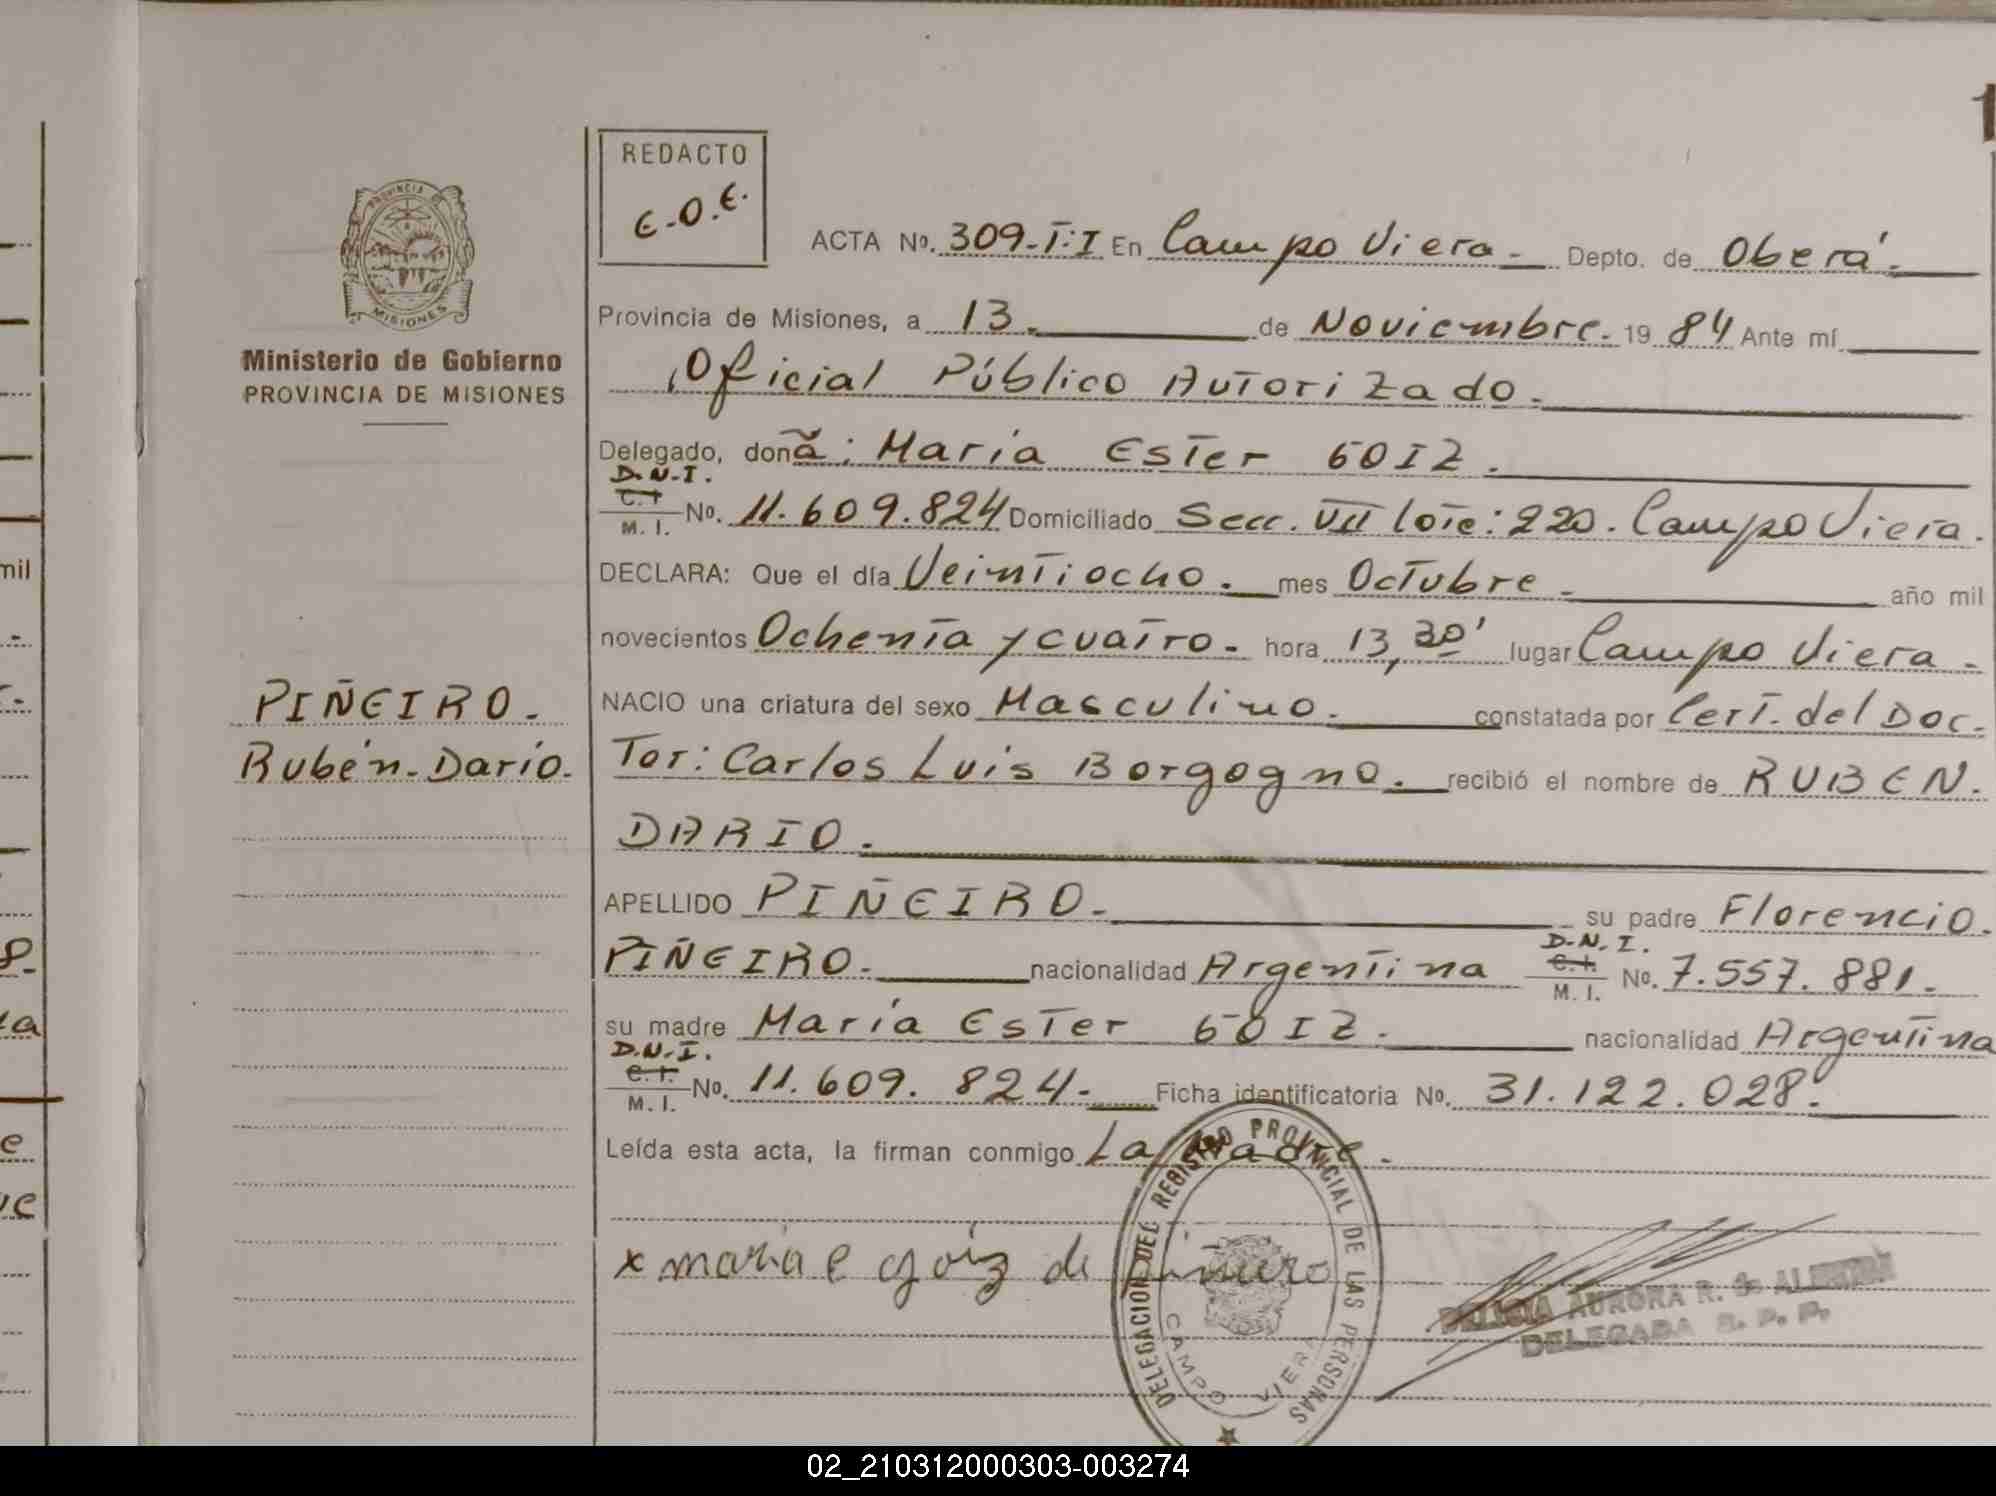 REDACTO
E.O.E.
PROVINCIA DE
MISIONES
Ministerio de Gobierno
PROVINCIA DE MISIONES
PIÑEIRO.
Rubén-Darío.
ACTA No. 309-T:I En Campo Viera. Depto. de Oberá.
Provincia de Misiones, a 13. de Noviembre. 19 84 Ante mí
Oficial Público Autorizado.
Delegado, doña: María Ester GOIZ.
D.N.I.
C.I.
M.I. No. 11.609.824 Domiciliado Secc. VII lote: 220. Campo Viera.
DECLARA: Que el día Veintiocho. mes Octubre año mil
novecientos Ochenta y cuatro. hora 13,30' lugar Campo Viera.
NACIO una criatura del sexo Masculino. constatada por Cert. del Doc.
Tor: Carlos Luis Borgogno. recibió el nombre de RUBEN.
DARIO.
APELLIDO PIÑEIRO. su padre Florencio.
PIÑEIRO. nacionalidad Argentina D.N.I. C.I. M.I. No. 7.557.881.
su madre María Ester GOIZ. nacionalidad Argentina
D.N.I.
C.I.
M.I. No. 11.609.824. Ficha identificatoria No. 31.122.028.
Leída esta acta, la firman conmigo La Madre.
x maria e goiz de piñeiro
DELEGACION DEL REGISTRO PROVINCIAL DE LAS PERSONAS
CAMPO VIERA
AURORA R.
DELEGADA R. P. P.
mil
02_210312000303-003274